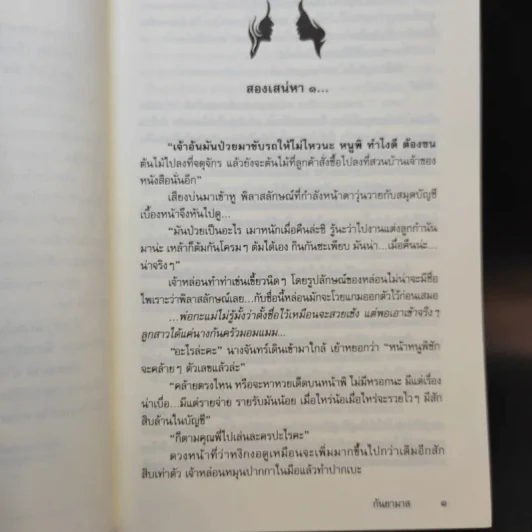 สองเสน่หา ๑...
“เจ้าอ้นมันป่วยมาขับรถให้ไม่ไหวนะ หนูพิ ทำไงดี ต้องขน
ต้นไม้ไปลงที่จตุจักร แล้วยังจะต้นไม้ที่ลูกค้าสั่งซื้อไปลงที่สวนบ้านเจ้าของ
หนังสือนั่นอีก”
เสียงบ่นมาเข้าหู พิลาสลักษณ์ที่กำลังหน้าดาวุ่นวายกับสมุดบัญชี
เบื้องหน้าจึงหันไปดู...
“มันป่วยเป็นอะไร เมาหนักเมื่อคืนล่ะซิ รู้นะว่าไปงานแต่งลูกกำนัน
มาน่ะ เหล้าก็ต้มกันโครมๆ ต้มได้เอง กินกันซะเพียบ มันน่า...เมื่อคืนน่ะ...
น่าจริงๆ”
เจ้าหล่อนทำท่าเข่นเขี้ยวนิดๆ โดยรูปลักษณ์ของหล่อนไม่น่าจะมีชื่อ
ไพเราะว่าพิลาสลักษณ์เลย...กับชื่อนี้หล่อนมักจะโวยแกมออกตัวไว้ก่อนเสมอ
...พ่อกะแม่ไม่รู้มั้งว่าตั้งชื่อไว้เหมือนจะสวยเช้ง แต่พอเอาเข้าจริงๆ
ลูกสาวได้แค่นางก้นครัวมอมแมม...
“อะไรล่ะคะ” นางจันทร์เดินเข้ามาใกล้ เย้าหยอกว่า “หน้าหนูพิชัก
จะคล้ายๆ ตัวเลขแล้วล่ะ”
“คล้ายตรงไหน หรือจะหาหวยเด็ดบนหน้าพิ ไม่มีหรอกนะ มีแต่เรื่อง
น่าเบื่อ...มีแต่รายจ่าย รายรับมันน้อย เมื่อไหร่น้อเมื่อไหร่จะรวยไวๆ มีสัก
สิบล้านในบัญชี”
“ก็ตามคุณพี่ไปเล่นละครปะไรคะ”
ดวงหน้าที่ว่าหงิกงอดูเหมือนจะเพิ่มมากขึ้นไปกว่าเดิมอีกสัก
สิบเท่าตัว เจ้าหล่อนหมุนปากกาในมือแล้วทำปากเบะ
กันยามาส ๑